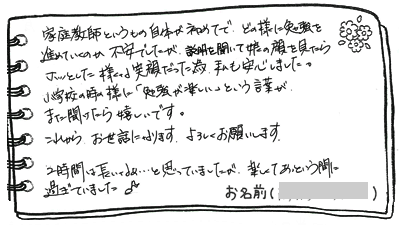 家庭教師というもの自体が初めてで、どの様に勉強を
進めていくのか不安でしたが、説明を聞いて娘の顔を見たら
ホッとした様な笑顔だった為、私も安心しました。
小学校の時の様に「勉強が楽しい」という言葉が
また聞けたら嬉しいです。
これから、お世話になります。よろしくお願いします。
2時間は長いよね…と思っていましたが、楽しくてあっという間に
過ぎていました
お名前( )